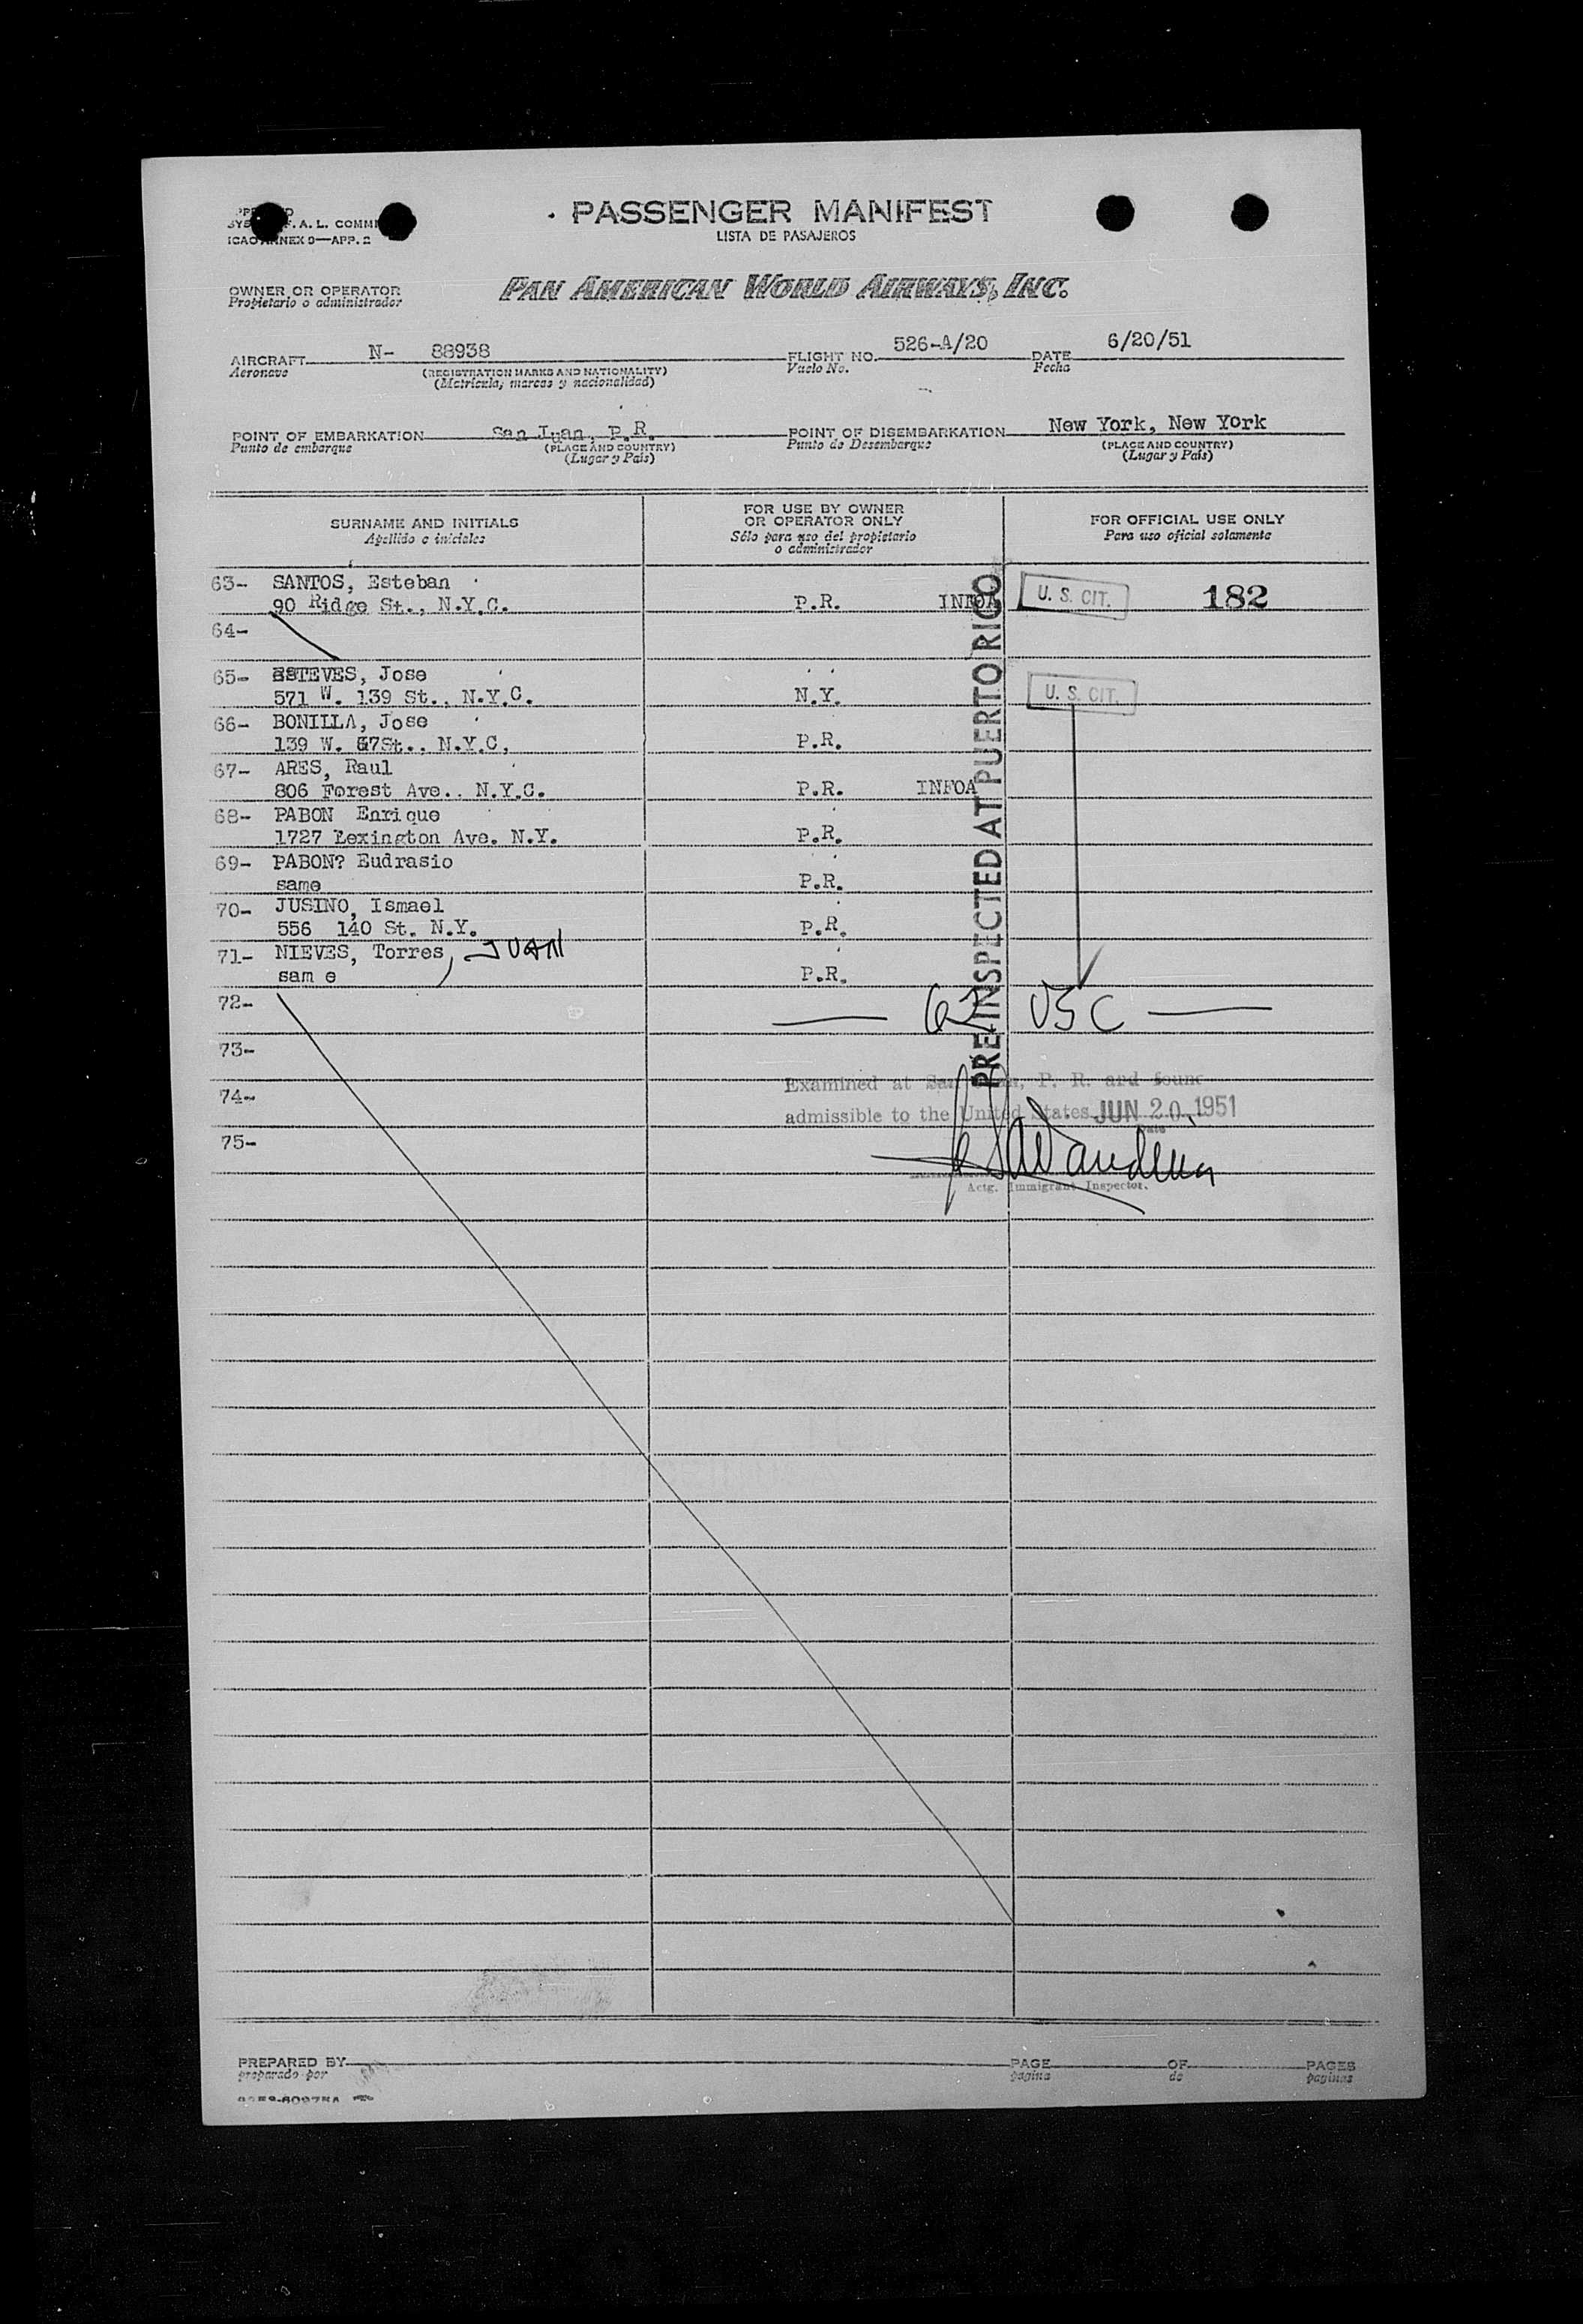 PASSENGER MANIFEST
LISTA DE PASAJEROS
F. A. L. COMMI
ICAO ANNEX 9—APP. 2
OWNER OR OPERATOR
Propietario o administrador
PAN AMERICAN WORLD AIRWAYS, INC.
AIRCRAFT N- 88938 FLIGHT NO. 526-A/20 DATE 6/20/51
Aeronave (REGISTRATION MARKS AND NATIONALITY) Vuelo No. Fecha
(Matricula, marcas y nacionalidad)
POINT OF EMBARKATION San Juan, P.R. POINT OF DISEMBARKATION New York, New York
Punto de embarque (PLACE AND COUNTRY) Punto de Desembarque (PLACE AND COUNTRY)
(Lugar y País) (Lugar y País)
SURNAME AND INITIALS FOR USE BY OWNER OR OPERATOR ONLY FOR OFFICIAL USE ONLY
Apellido e iniciales Sólo para uso del propietario o administrador Para uso oficial solamente
63- SANTOS, Esteban
90 Ridge St., N.Y.C. P.R. INFOA U. S. CIT. 182
64-
65- ESTEVES, Jose
571 W. 139 St., N.Y.C. N.Y. U. S. CIT.
66- BONILLA, Jose
139 W. 67St., N.Y.C, P.R.
67- ARES, Raul
806 Forest Ave.. N.Y.C. P.R. INFOA
68- PABON Enrique
1727 Lexington Ave. N.Y. P.R.
69- PABON? Eudrasio
same P.R.
70- JUSINO, Ismael
556 140 St. N.Y. P.R.
71- NIEVES, Torres, JUAN
sam e P.R.
72- USC
73-
74-
75-
PRE-INSPECTED AT PUERTO RICO
Examined at San Juan, P. R. and found
admissible to the United States JUN 20 1951
Date
Actg. Immigrant Inspector.
PREPARED BY PAGE OF PAGES
preparado por página de páginas